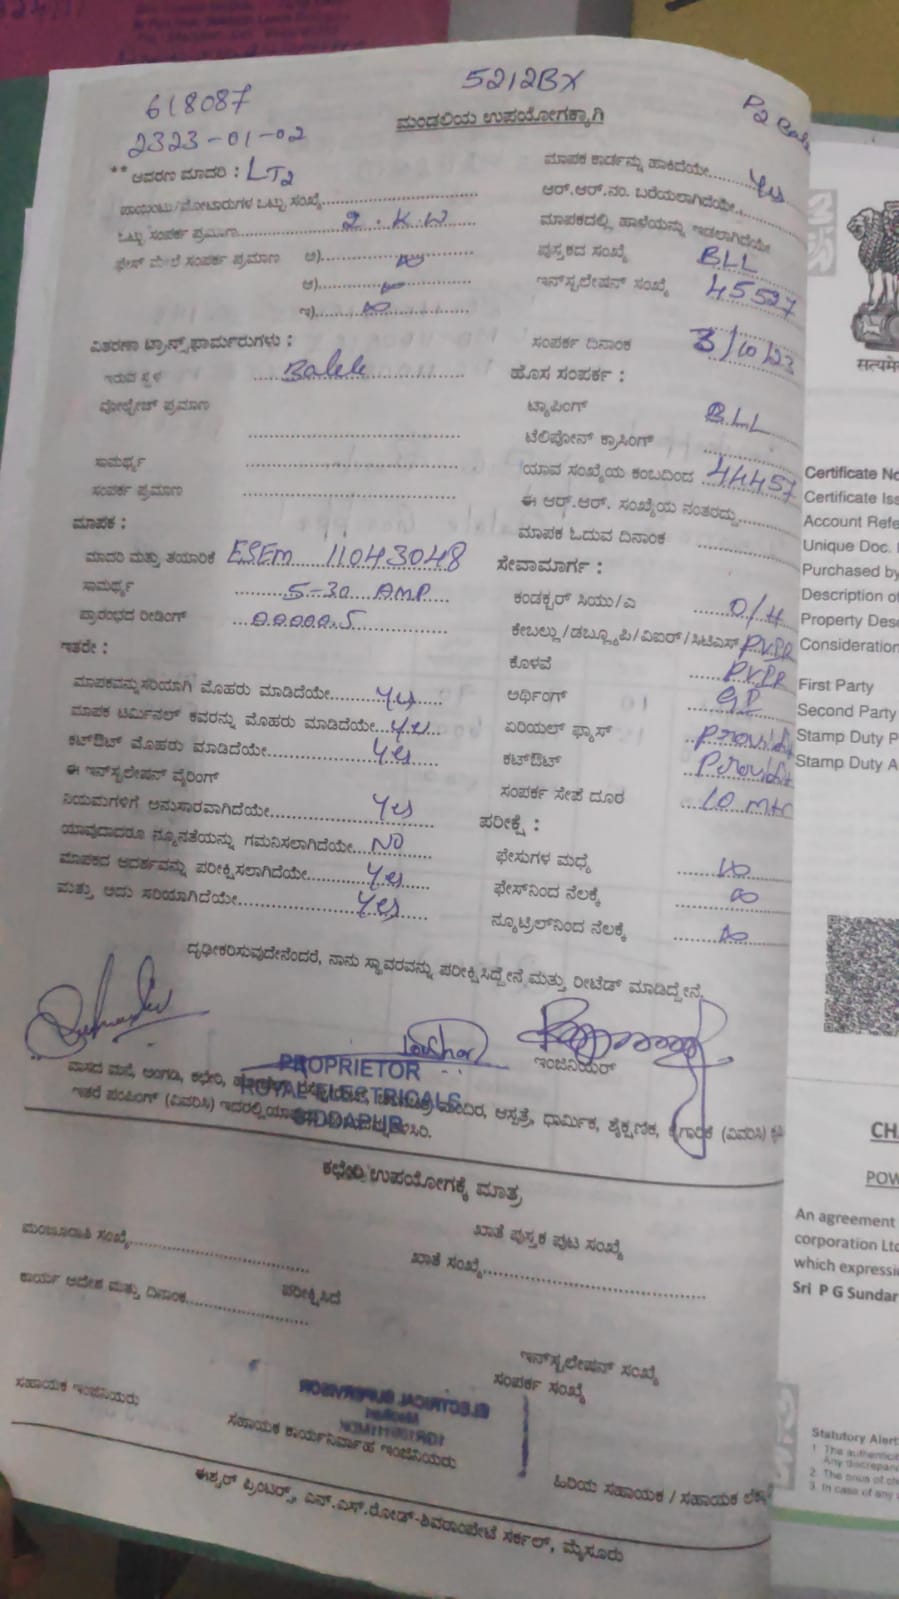 618087
2323-01-02
5212BX
P2 Bale
ಮಂಡಲಿಯ ಉಪಯೋಗಕ್ಕಾಗಿ
** ಆವರಣ ಮಾದರಿ : LT2
ಪಾಯಿಂಟು/ಮೋಟಾರುಗಳ ಒಟ್ಟು ಸಂಖ್ಯೆ
ಒಟ್ಟು ಸಂಪರ್ಕ ಪ್ರಮಾಣ 2. KW
ಫೇಸ್ ಮೇಲೆ ಸಂಪರ್ಕ ಪ್ರಮಾಣ ಅ)
ಆ)
ಇ)
ಮಾಪಕ ಕಾರ್ಡನ್ನು ಹಾಕಿದೆಯೇ Yes
ಆರ್.ಆರ್.ನಂ. ಬರೆಯಲಾಗಿದೆಯೇ
ಮಾಪಕದಲ್ಲಿ ಹಾಳೆಯನ್ನು ಇಡಲಾಗಿದೆಯೇ
ಪುಸ್ತಕದ ಸಂಖ್ಯೆ BLL
ಇನ್‌ಸ್ಟಲೇಷನ್ ಸಂಖ್ಯೆ 45527
ವಿತರಣಾ ಟ್ರಾನ್ಸ್‌ಫಾರ್ಮರುಗಳು :
ಇರುವ ಸ್ಥಳ Balele
ವೋಲ್ಟೇಜ್ ಪ್ರಮಾಣ
ಸಾಮರ್ಥ್ಯ
ಸಂಪರ್ಕ ಪ್ರಮಾಣ
ಸಂಪರ್ಕ ದಿನಾಂಕ 3/10/23
ಹೊಸ ಸಂಪರ್ಕ :
ಟ್ಯಾಪಿಂಗ್ BLL
ಟೆಲಿಫೋನ್ ಕ್ರಾಸಿಂಗ್
ಯಾವ ಸಂಖ್ಯೆಯ ಕಂಬದಿಂದ 44457
ಈ ಆರ್.ಆರ್. ಸಂಖ್ಯೆಯ ನಂತರದ್ದು
ಮಾಪಕ ಓದುವ ದಿನಾಂಕ
ಮಾಪಕ :
ಮಾದರಿ ಮತ್ತು ತಯಾರಿಕೆ ESEM 11043048
ಸಾಮರ್ಥ್ಯ 5-30 AMP
ಪ್ರಾರಂಭದ ರೀಡಿಂಗ್ 00000.5
ಇತರೇ :
ಮಾಪಕವನ್ನು ಸರಿಯಾಗಿ ಮೊಹರು ಮಾಡಿದೆಯೇ Yes
ಮಾಪಕ ಟರ್ಮಿನಲ್ ಕವರನ್ನು ಮೊಹರು ಮಾಡಿದೆಯೇ Yes
ಕಟ್‌ಔಟ್ ಮೊಹರು ಮಾಡಿದೆಯೇ Yes
ಈ ಇನ್‌ಸ್ಟಲೇಷನ್ ವೈರಿಂಗ್
ನಿಯಮಗಳಿಗೆ ಅನುಸಾರವಾಗಿದೆಯೇ Yes
ಯಾವುದಾದರೂ ನ್ಯೂನತೆಯನ್ನು ಗಮನಿಸಲಾಗಿದೆಯೇ NO
ಮಾಪಕದ ಆದರ್ಶವನ್ನು ಪರೀಕ್ಷಿಸಲಾಗಿದೆಯೇ Yes
ಮತ್ತು ಅದು ಸರಿಯಾಗಿದೆಯೇ Yes
ಸೇವಾಮಾರ್ಗ :
ಕಂಡಕ್ಟರ್ ಸಿಯು/ಎ O/H
ಕೇಬಲ್ಲು/ಡಬ್ಲ್ಯೂಪಿ/ವಿಐಆರ್/ಸಿಟಿಎಸ್
ಕೊಳವೆ
ಅರ್ಥಿಂಗ್ GI
ಏರಿಯಲ್ ಫ್ಯೂಸ್
ಕಟ್‌ಔಟ್
ಸಂಪರ್ಕ ಸೇಪೆ ದೂರ 10 mtr
ಪರೀಕ್ಷೆ :
ಫೇಸುಗಳ ಮಧ್ಯೆ
ಫೇಸ್‌ನಿಂದ ನೆಲಕ್ಕೆ
ನ್ಯೂಟ್ರಲ್‌ನಿಂದ ನೆಲಕ್ಕೆ
ದೃಢೀಕರಿಸುವುದೇನೆಂದರೆ, ನಾನು ಸ್ಥಾವರವನ್ನು ಪರೀಕ್ಷಿಸಿದ್ದೇನೆ ಮತ್ತು ರೀಟೆಡ್ ಮಾಡಿದ್ದೇನೆ.
ಇಂಜಿನಿಯರ್
PROPRIETOR
ROYAL ELECTRICALS
SIDDAPUR
ವಾಸದ ಮನೆ, ಅಂಗಡಿ, ಕಛೇರಿ, ಮಂದಿರ, ಆಸ್ಪತ್ರೆ, ಧಾರ್ಮಿಕ, ಶೈಕ್ಷಣಿಕ, ಕೈಗಾರಿಕೆ (ವಿವರಿಸಿ)
ಇತರೆ ಪಂಪಿಂಗ್ (ವಿವರಿಸಿ)
ಕಛೇರಿ ಉಪಯೋಗಕ್ಕೆ ಮಾತ್ರ
ಮಂಜೂರಾತಿ ಸಂಖ್ಯೆ
ಖಾತೆ ಪುಸ್ತಕ ಪುಟ ಸಂಖ್ಯೆ
ಖಾತೆ ಸಂಖ್ಯೆ
ಕಾರ್ಯ ಆದೇಶ ಮತ್ತು ದಿನಾಂಕ
ಪರೀಕ್ಷಿಸಿದೆ
ಇನ್‌ಸ್ಟಲೇಷನ್ ಸಂಖ್ಯೆ
ಸಂಪರ್ಕ ಸಂಖ್ಯೆ
ಸಹಾಯಕ ಇಂಜಿನಿಯರು
ಸಹಾಯಕ ಕಾರ್ಯನಿರ್ವಾಹ ಇಂಜಿನಿಯರು
ಹಿರಿಯ ಸಹಾಯಕ / ಸಹಾಯಕ
ಈಶ್ವರ್ ಪ್ರಿಂಟರ್ಸ್, ಎನ್.ಎಸ್.ರೋಡ್-ಶಿವರಾಂಪೇಟೆ ಸರ್ಕಲ್, ಮೈಸೂರು
सत्यमे
Certificate No
Certificate Iss
Account Refe
Unique Doc.
Purchased by
Description of
Property Desc
Consideration
First Party
Second Party
Stamp Duty P
Stamp Duty A
CHA
POW
An agreement
corporation Ltd
which expressi
Sri P G Sundar
Statutory Alert
1. The authentici
Any discrepan
2. The onus of ch
3. In case of any